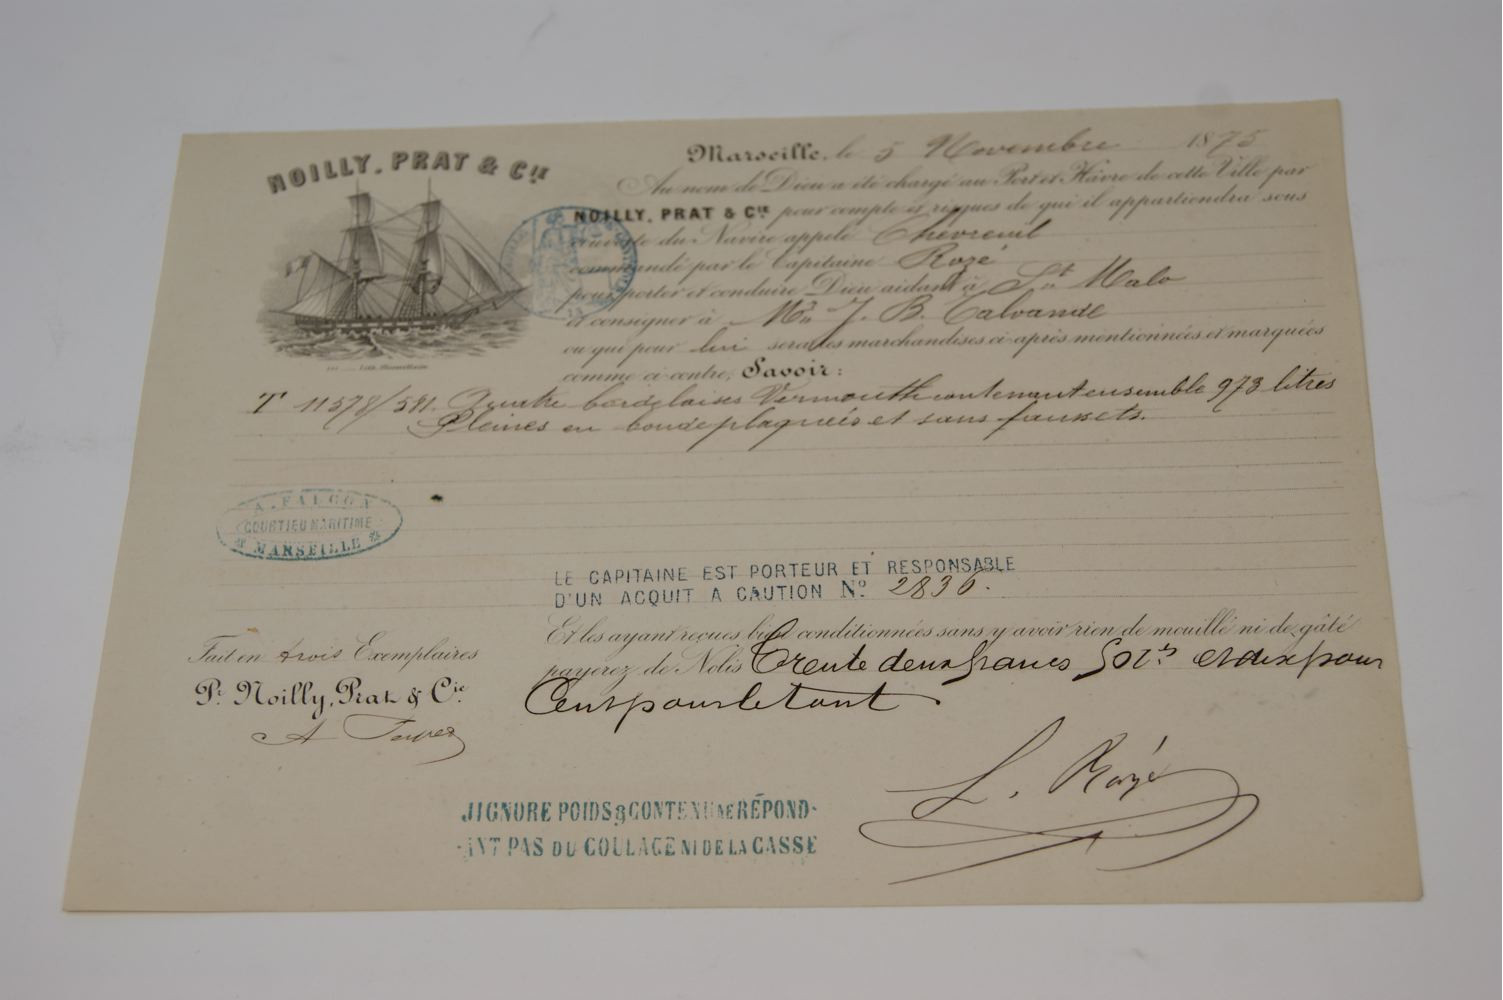 NOILLY, PRAT & Cie
Marseille, le 5 Novembre 1875
Au nom de Dieu a été chargé au Port et Hâvre de cette Ville par
NOILLY, PRAT & Cie pour compte et risques de qui il appartiendra sous
du Navire appelé Chevreuil
commandé par le Capitaine Rozé
pour porter et conduire Dieu aidant à St Malo
et consigner à Mr J. B. Talvande
ou qui pour lui sera les marchandises ci-après mentionnées et marquées
comme ci-contre, Savoir:
T 11578/581. Quatre bordelaises Vermouth contenant ensemble 973 litres
Pleines en bonde plaquéis et sans faussets.
A. FALCON
COURTIEU MARITIME
MARSEILLE
LE CAPITAINE EST PORTEUR ET RESPONSABLE
D'UN ACQUIT A CAUTION No 2836.
Et les ayant reçues bien conditionnées sans y avoir rien de mouillé ni de gâté
payerez de Nolis Trente deux francs et dix pour
Cent pour le tout
Fait en trois Exemplaires
Pr Noilly, Prat & Cie
A
L. Rozé
J'IGNORE POIDS & CONTENU NE RÉPOND-
ANT PAS DU COULAGE NI DE LA CASSE